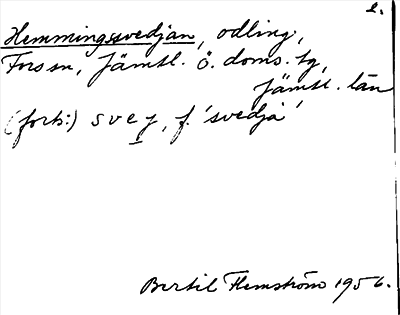 e.
Hemmingssvedjan, odling,
Fors sn, Jämtl. ö. doms. tg,
Jämtl. län
(forts:) svej, f. 'svedja'
Bertil Flemström 1956.